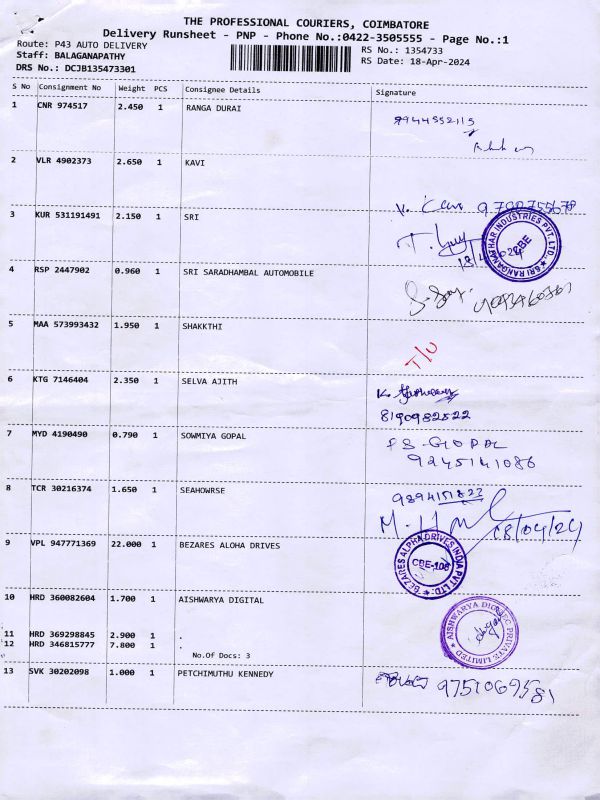 THE PROFESSIONAL COURIERS, COIMBATORE
Delivery Runsheet - PNP - Phone No.:0422-3505555 - Page No.:1
Route: P43 AUTO DELIVERY
RS No.: 1354733
Staff: BALAGANAPATHY
RS Date: 18-Apr-2024
DRS No.: DCJB135473301
S No Consignment No Weight PCS Consignee Details Signature
1 CNR 974517 2.450 1 RANGA DURAI
9944552115
2 VLR 4902373 2.650 1 KAVI
9790755678
3 KUR 531191491 2.150 1 SRI
SRI RANGANATHAR INDUSTRIES PVT. LTD. CBE
4 RSP 2447902 0.960 1 SRI SARADHAMBAL AUTOMOBILE
5 MAA 573993432 1.950 1 SHAKKTHI
T/U
6 KTG 7146404 2.350 1 SELVA AJITH
8190982522
7 MYD 4190490 0.790 1 SOWMIYA GOPAL
S GOPAL
9245141086
8 TCR 30216374 1.650 1 SEAHOWRSE
9894151822
18/04/24
9 VPL 947771369 22.000 1 BEZARES ALOHA DRIVES
BEZARES ALPHA DRIVES INDIA PVT LTD. CBE-108
10 HRD 360082604 1.700 1 AISHWARYA DIGITAL
AISHWARYA PRIVATE LIMITED
11 HRD 369298845 2.900 1 .
12 HRD 346815777 7.800 1 .
No.Of Docs: 3
13 SVK 30202098 1.000 1 PETCHIMUTHU KENNEDY
9751069581